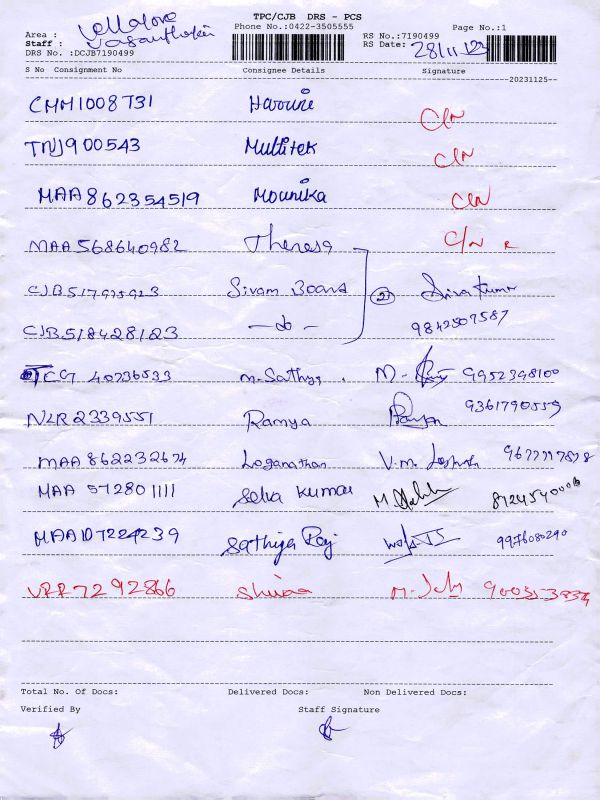 TPC/CJB DRS - PCS
Phone No.:0422-3505555 Page No.:1
Area : Vellalore
Staff : Vasanthakumar RS No.:7190499
DRS No. :DCJB7190499 RS Date: 28/11/23
S No Consignment No Consignee Details Signature
20231125
CMM1008731 Harini C/N
TNJ900543 Multitek C/N
MAA862354519 Mounika C/N
MAA568640982 Theresa C/N
CJB517975923 Sivam Boards 2 Siva Kumar
CJB518428123 -do- 9842507587
TCG 40736533 M. Sathya. M- 9952398100
NLR2339551 Ramya Ramya 9361790559
MAA 862232674 Loganathan V.m.
MAA 572801111 Selva Kumar M.
MAA107224239 Sathiya Raj 9976080290
VRR7292866 Shivaa M.
Total No. Of Docs: Delivered Docs: Non Delivered Docs:
Verified By Staff Signature